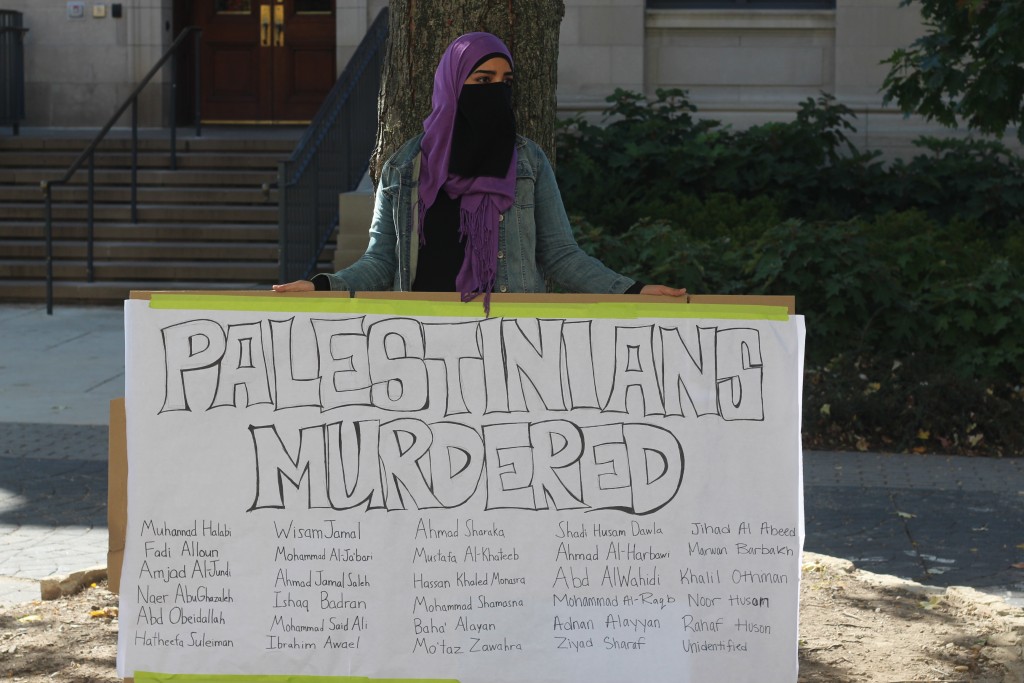 PALESTINIANS
MURDERED
Muhannad Halabi
Fadi Alloun
Amjad Al-Jundi
Naer AbuGhazaleh
Abd Obeidallah
Hatheefa Suleiman
Wisam Jamal
Mohammad Al-Ja'bari
Ahmad Jamal Saleh
Ishaq Badran
Mohammad Said Ali
Ibrahim Awael
Ahmad Sharaka
Murtafa Al-Khateeb
Hassan Khaled Monasra
Mohammad Shamasna
Baha' Alayan
Mo'taz Zawahra
Shadi Husam Dawla
Ahmad Al-Harbawi
Abd AlWahidi
Mohammad Al-Raqb
Adnan Alayyan
Ziyad Sharaf
Jihad Al Abeed
Marwan Barbakh
Khalil Othman
Noor Huson
Rahaf Huson
Unidentified